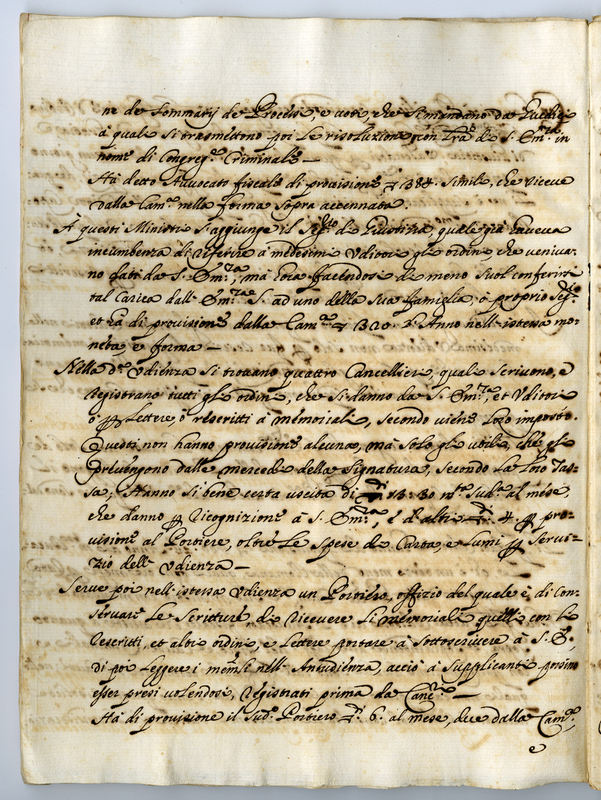 ne de Sommarij de Processi, e voti, che si mandano da Giudici
à quale si trasmettono poi le risolutione con lra de S. Em.za in
nome di Congreg.e Criminale —
Hà detto Avvocato fiscale di provisione 384. simile, che riceve
dalla Cam.a nella forma sopra accennata.
A questi Ministri s'aggiunge il Seg.rio di Giustitia, quale già haveva
incumbenza di riferire à medesimi Uditori gl'ordini che veniva-
no dati da S. Em.za, ma hora facendosi di meno suol conferirsi
tal Carica dall' Em.za S. ad uno della sua famiglia, ò proprio Seg.rio
et hà di provisione dalla Cam.a 320. l'Anno nell'istessa mo-
neta, e forma —
Nella d.a Udienza si trovano quattro Cancellieri, quali scrivono, e
Registrano tutti gl'ordini, che si danno da S. Em.za, et Uditori
ò p lettere, ò rescritti à memoriali, secondo viene loro imposto.
Questi non hanno provisione alcuna, mà solo gl'utili, che gl'
prevengono dalle mercede della Signatura, secondo la loro Tas-
sa; Hanno si bene certa uscita di 13: 30 m.ta Sud.a al mese,
che danno p Ricognizione à S. Em.za, e d'altri 4. p pro-
visione al Portiere, oltre le spese di Carta, e lumi p servi-
zio dell' Udienza —
Serve poi nell'istessa Udienza un Portiero, offizio del quale è, di Con-
servare le scritture, di ricevere li memoriali, quelli con li
rescritti, et altri ordini, e lettere portare à sottoscrivere à S. E.,
di poi leggere i mem.li nell' Antudienza, acciò à supplicanti possino
esser presi volendosi, registrati prima da Canc.ri —
Hà di provisione il Sud.o Portiero 6. al mese, due dalla Cam.a,
e